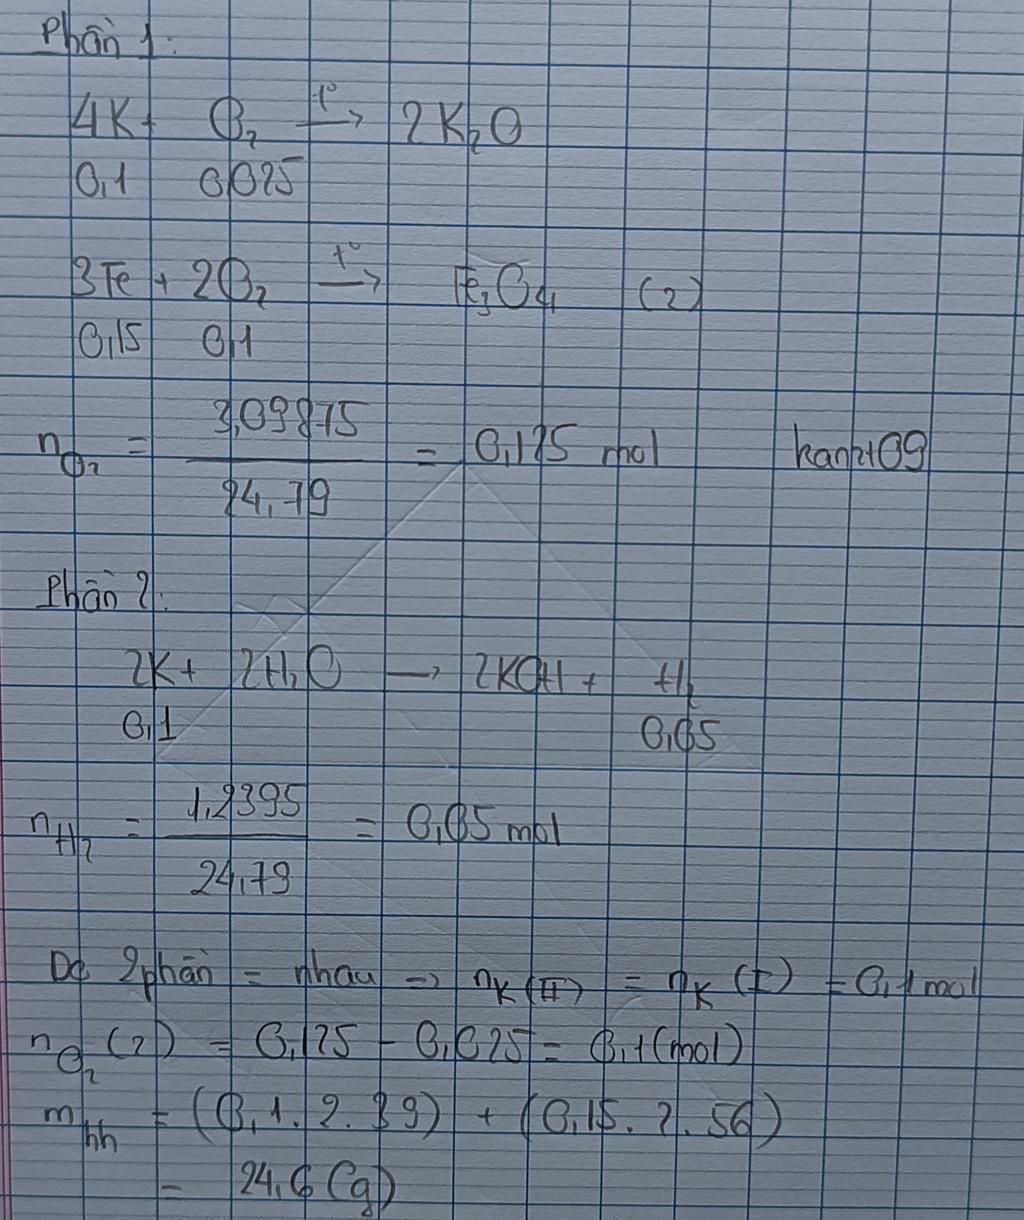 Phần 1:
4K + O₂ t°→ 2K₂O
0,1 0,025
3Fe + 2O₂ t°→ Fe₃O₄ (2)
0,15 0,1
n O₂ = 3,09875 / 24,79 = 0,125 mol
Phần 2:
2K + 2H₂O → 2KOH + H₂
0,1 0,05
n H₂ = 1,2395 / 24,79 = 0,05 mol
Do 2 phần = nhau => n K (II) = n K (I) = 0,1 mol
n O₂ (2) = 0,125 - 0,025 = 0,1 (mol)
m hh = (0,1.2.39) + (0,15.2.56)
= 24,6 (g)